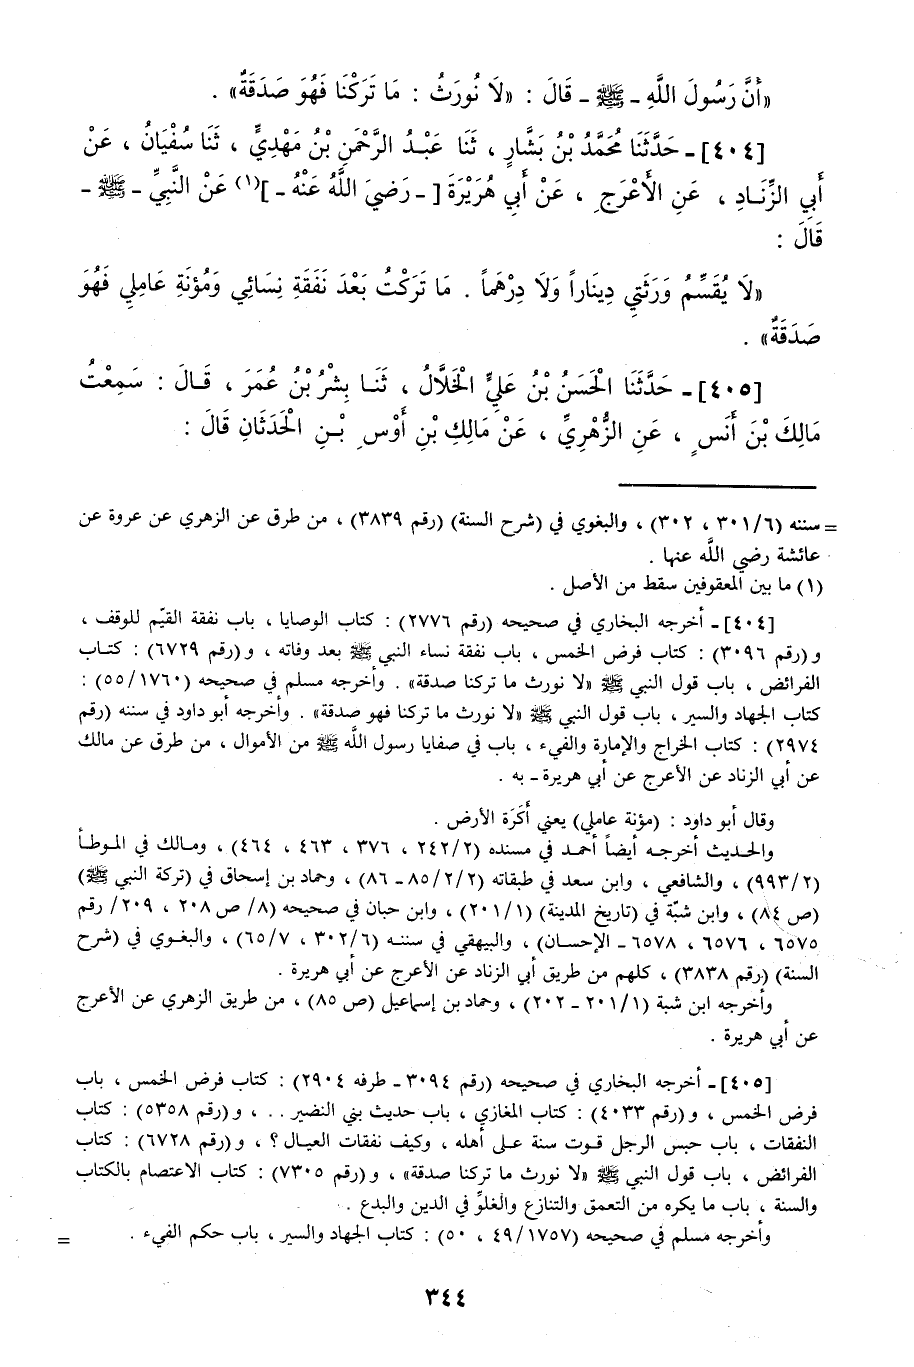 «أَنَّ رَسُولَ اللَّهِ ـ ﷺ ـ قَالَ : «لَا نُورَثُ : مَا تَرَكْنَا فَهُوَ صَدَقَةٌ» .
[٤٠٤] ـ حَدَّثَنَا مُحَمَّدُ بْنُ بَشَّارٍ ، ثَنَا عَبْدُ الرَّحْمَنِ بْنُ مَهْدِيٍّ ، ثَنَا سُفْيَانُ ، عَنْ
أَبِي الزِّنَادِ ، عَنِ الأَعْرَجِ ، عَنْ أَبِي هُرَيْرَةَ [ ـ رَضِيَ اللَّهُ عَنْهُ ـ ](١) عَنْ النَّبِيِّ ـ ﷺ ـ
قَالَ :
«لَا يُقَسِّمُ وَرَثَتِي دِينَاراً وَلَا دِرْهَماً . مَا تَرَكْتُ بَعْدَ نَفَقَةِ نِسَائِي وَمُؤنَةِ عَامِلِي فَهُوَ
صَدَقَةٌ» .
[٤٠٥] ـ حَدَّثَنَا الْحَسَنُ بْنُ عَلِيٍّ الْخَلَّالُ ، ثَنَا بِشْرُ بْنُ عُمَرَ ، قَالَ : سَمِعْتُ
مَالِكَ بْنَ أَنَسٍ ، عَنِ الزُّهْرِيِّ ، عَنْ مَالِكِ بْنِ أَوْسِ بْنِ الْحَدَثَانِ قَالَ :
= سننه (٦/ ٣٠١ ، ٣٠٢) ، والبغوي في (شرح السنة) (رقم ٣٨٣٩) ، من طرق عن الزهري عن عروة عن
عائشة رضي اللَّه عنها .
(١) ما بين المعقوفين سقط من الأصل .
[٤٠٤] ـ أخرجه البخاري في صحيحه (رقم ٢٧٧٦) : كتاب الوصايا ، باب نفقة القيّم للوقف ،
و (رقم ٣٠٩٦) : كتاب فرض الخمس ، باب نفقة نساء النبي ﷺ بعد وفاته ، و (رقم ٦٧٢٩) : كتاب
الفرائض ، باب قول النبي ﷺ «لا نورث ما تركنا صدقة» . وأخرجه مسلم في صحيحه (١٧٦٠/ ٥٥) :
كتاب الجهاد والسير ، باب قول النبي ﷺ «لا نورث ما تركنا فهو صدقة» . وأخرجه أبو داود في سننه (رقم
٢٩٧٤) : كتاب الخراج والإمارة والفيء ، باب في صفايا رسول اللَّه ﷺ من الأموال ، من طرق عن مالك
عن أبي الزناد عن الأعرج عن أبي هريرة ـ به .
وقال أبو داود : (مؤنة عاملي) يعني أَكَرَة الأرض .
والحديث أخرجه أيضاً أحمد في مسنده (٢/ ٢٤٢ ، ٣٧٦ ، ٤٦٣ ، ٤٦٤) ، ومالك في الموطأ
(٢/ ٩٩٣) ، والشافعي ، وابن سعد في طبقاته (٢/ ٢/ ٨٥ ـ ٨٦) ، وحماد بن إسحاق في (تركة النبي ﷺ)
(ص ٨٤) ، وابن شبّة في (تاريخ المدينة) (١/ ٢٠١) ، وابن حبان في صحيحه (٨/ ص ٢٠٨ ، ٢٠٩/ رقم
٦٥٧٥ ، ٦٥٧٦ ، ٦٥٧٨ ـ الإحسان) ، والبيهقي في سننه (٦/ ٣٠٢ ، ٧/ ٦٥) ، والبغوي في (شرح
السنة) (رقم ٣٨٣٨) ، كلهم من طريق أبي الزناد عن الأعرج عن أبي هريرة .
وأخرجه ابن شبة (١/ ٢٠١ ـ ٢٠٢) ، وحماد بن إسماعيل (ص ٨٥) ، من طريق الزهري عن الأعرج
عن أبي هريرة .
[٤٠٥] ـ أخرجه البخاري في صحيحه (رقم ٣٠٩٤ ـ طرفه ٢٩٠٤) : كتاب فرض الخمس ، باب
فرض الخمس ، و (رقم ٤٠٣٣) : كتاب المغازي ، باب حديث بني النضير . . ، و (رقم ٥٣٥٨) : كتاب
النفقات ، باب حبس الرجل قوت سنة على أهله ، وكيف نفقات العيال ؟ ، و (رقم ٦٧٢٨) : كتاب
الفرائض ، باب قول النبي ﷺ «لا نورث ما تركنا صدقة» ، و (رقم ٧٣٠٥) : كتاب الاعتصام بالكتاب
والسنة ، باب ما يكره من التعمق والتنازع والغلوِّ في الدين والبدع .
وأخرجه مسلم في صحيحه (١٧٥٧/ ٤٩ ، ٥٠) : كتاب الجهاد والسير ، باب حكم الفيء . =
٣٤٤